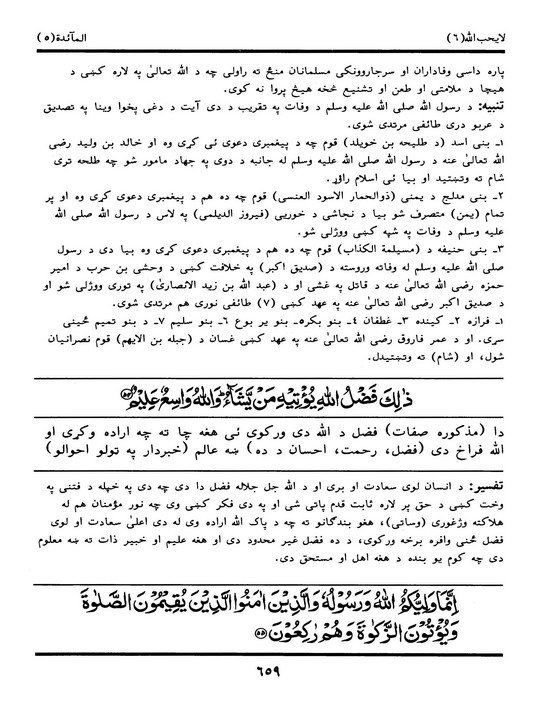 لايحب الله (٦) المآئدة (٥)
پاره داسې وفاداران او سرجارووونکي مسلمانان منځ ته راولي چه د الله تعالىٰ په لاره کښي د
هيچا د ملامتى او طعن او تشنيع څخه هيڅ پروا نه کوى.
تنبيه: د رسول الله صلى الله عليه وسلم د وفات په تقريب د دى آيت د دغې پخوا وينا په تصديق
د عربو درى طائفى مرتدى شوى.
١ـ بنى اسد (د طليحه بن خويلد) قوم چه د پيغمبرى دعوى ئى کړى وه او خالد بن وليد رضى
الله تعالىٰ عنه د رسول الله صلى الله عليه وسلم له جانبه د دوى په جهاد مامور شو چه طلحه ترى
شام ته وتښتيد او بيا ئى اسلام راوړ.
٢ـ بنى مدلج د يمنى (ذوالحمار الاسود العنسى) قوم چه ده هم د پيغمبرى دعوى کړى وه او پر
تمام (يمن) متصرف شو بيا د نجاشى د خوريى (فيروز الديلمى) په لاس د رسول الله صلى الله
عليه وسلم د وفات په شپه کښى ووژلى شو.
٣ـ بنى حنيفه د (مسيلمة الکذاب) قوم چه ده هم د پيغمبرى دعوى کړى وه بيا دى د رسول
صلى الله عليه وسلم له وفاته وروسته د (صديق اکبر) په خلافت کښى د وحشى بن حرب د امير
حمزه رضى الله تعالىٰ عنه د قاتل په غشى او د (عبد الله بن زيد الانصارىؓ) په تورى ووژلى شو او
د صديق اکبر رضى الله تعالىٰ عنه په عهد کښى (٧) طائفى نورى هم مرتدى شوى.
١ـ فرازه ٢ـ کينده ٣ـ غطفان ٤ـ بنو بکر ٥ـ بنو ير بوع ٦ـ بنو سليم ٧ـ د بنو تميم ځينى
سړى. او د عمر فاروق رضى الله تعالىٰ عنه په عهد کښى غسان د (جبله بن الايهم) قوم نصرانيان
شول، او (شام) ته وتښتيدل.
ذٰلِكَ فَضْلُ اللّٰهِ يُؤْتِيْهِ مَنْ يَّشَآءُ وَاللّٰهُ وَاسِعٌ عَلِيْمٌ ﴿٥٤﴾
دا (مذکوره صفات) فضل د الله دى ورکوى ئى هغه چا ته چه اراده وکړى او
الله فراخ دى (فضل، رحمت، احسان د ده) ښه عالم (خبردار په ټولو احوالو)
تفسير: د انسان لوى سعادت او برى او د الله جل جلاله فضل دا دى چه دى په خپله د فتنى په
وخت کښى د حق پر لاره ثابت قدم پاتى شى او په دى فکر کښى وى چه نور مؤمنان هم له
هلاکته وژغورى (وساتى)، هغو بندگانو ته چه د پاک الله اراده وى له دى اعلىٰ سعادت او لوى
فضل ځنى وافره برخه ورکوى، د ده فضل غير محدود دى او هغه عليم او خبير ذات ته ښه معلوم
دى چه کوم يو بنده د هغه اهل او مستحق دى.
اِنَّمَا وَلِيُّكُمُ اللّٰهُ وَرَسُوْلُهٗ وَالَّذِيْنَ اٰمَنُوا الَّذِيْنَ يُقِيْمُوْنَ الصَّلٰوةَ
وَيُؤْتُوْنَ الزَّكٰوةَ وَهُمْ رٰكِعُوْنَ ﴿٥٥﴾
٦٥٩